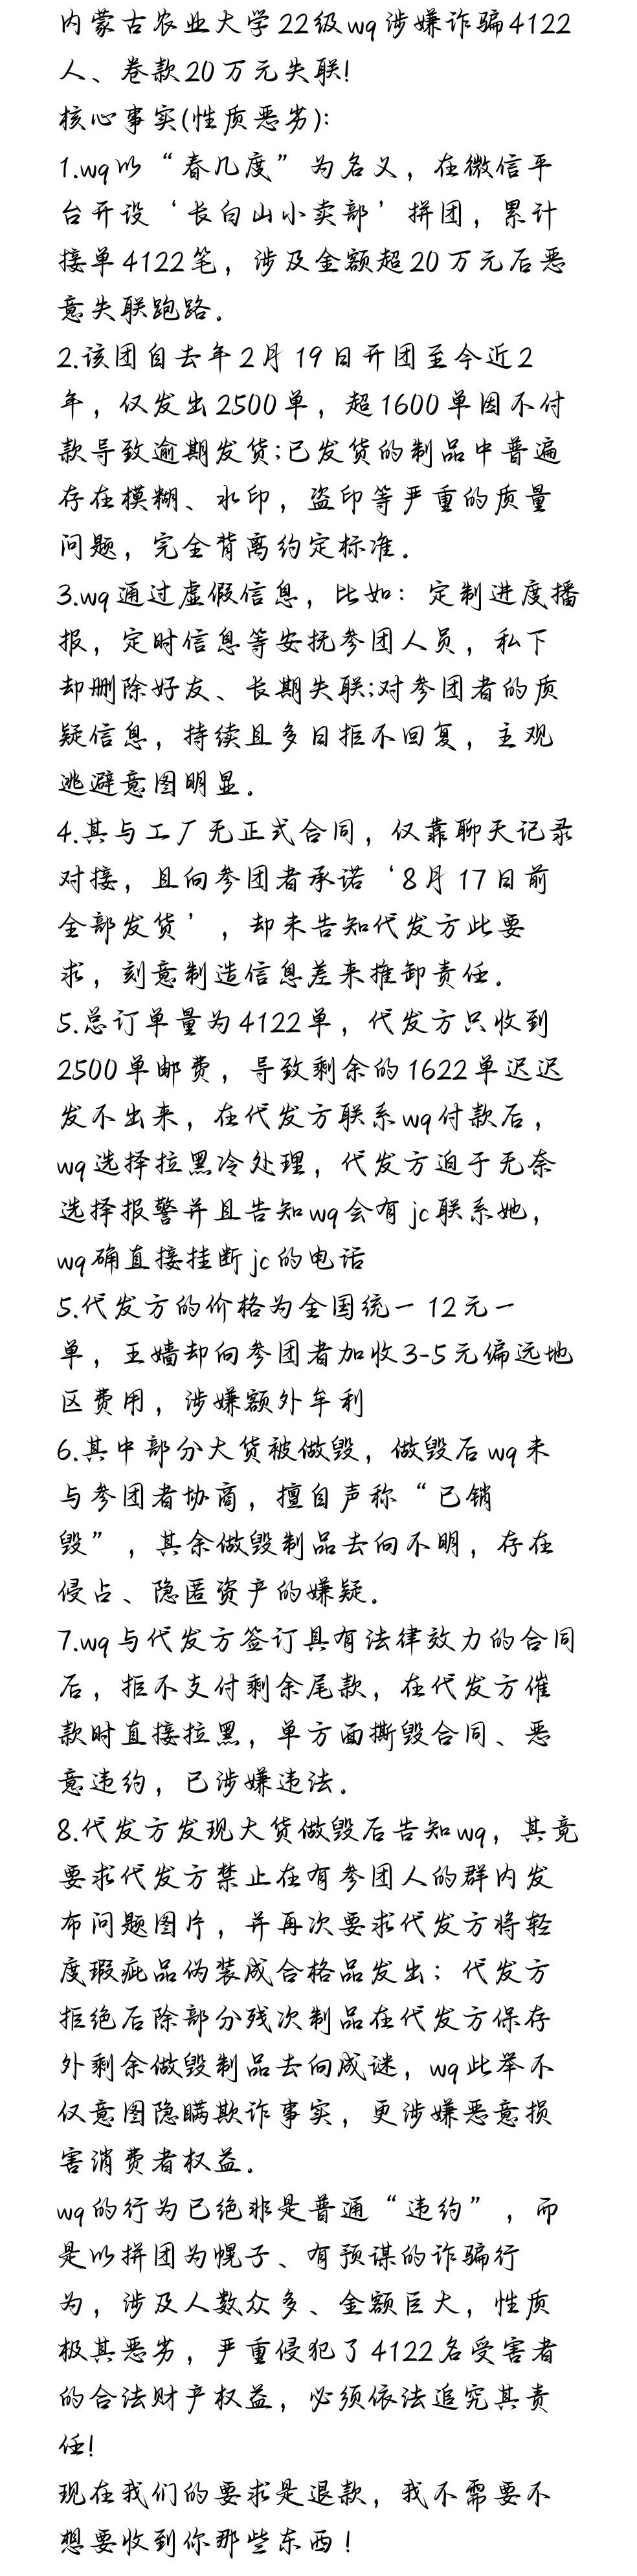 内蒙古农业大学22级wq涉嫌诈骗4122
人、卷款20万元失联!
核心事实(性质恶劣):
1.wq以“春几度”为名义，在微信平
台开设‘长白山小卖部’拼团，累计
接单4122笔，涉及金额超20万元后恶
意失联跑路.
2.该团自去年2月19日开团至今近2
年，仅发出2500单，超1600单因不付
款导致逾期发货;已发货的制品中普遍
存在模糊、水印，盗印等严重的质量
问题，完全背离约定标准.
3.wq通过虚假信息，比如：定制进度播
报，定时信息等安抚参团人员，私下
却删除好友、长期失联;对参团者的质
疑信息，持续且多日拒不回复，主观
逃避意图明显.
4.其与工厂无正式合同，仅靠聊天记录
对接，且向参团者承诺‘8月17日前
全部发货’，却未告知代发方此要
求，刻意制造信息差来推卸责任.
5.总订单量为4122单，代发方只收到
2500单邮费，导致剩余的1622单迟迟
发不出来，在代发方联系wq付款后，
wq选择拉黑冷处理，代发方迫于无奈
选择报警并且告知wq会有jc联系她，
wq确直接挂断jc的电话
5.代发方的价格为全国统一12元一
单，王嫱却向参团者加收3-5元偏远地
区费用，涉嫌额外牟利
6.其中部分大货被做毁，做毁后wq未
与参团者协商，擅自声称“已销
毁”，其余做毁制品去向不明，存在
侵占、隐匿资产的嫌疑.
7.wq与代发方签订具有法律效力的合同
后，拒不支付剩余尾款，在代发方催
款时直接拉黑，单方面撕毁合同、恶
意违约，已涉嫌违法.
8.代发方发现大货做毁后告知wq，其竟
要求代发方禁止在有参团人的群内发
布问题图片，并再次要求代发方将轻
度瑕疵品伪装成合格品发出；代发方
拒绝后除部分残次制品在代发方保存
外剩余做毁制品去向成谜，wq此举不
仅意图隐瞒欺诈事实，更涉嫌恶意损
害消费者权益.
wq的行为已绝非是普通“违约”，而
是以拼团为幌子、有预谋的诈骗行
为，涉及人数众多、金额巨大，性质
极其恶劣，严重侵犯了4122名受害者
的合法财产权益，必须依法追究其责
任!
现在我们的要求是退款，我不需要不
想要收到你那些东西！